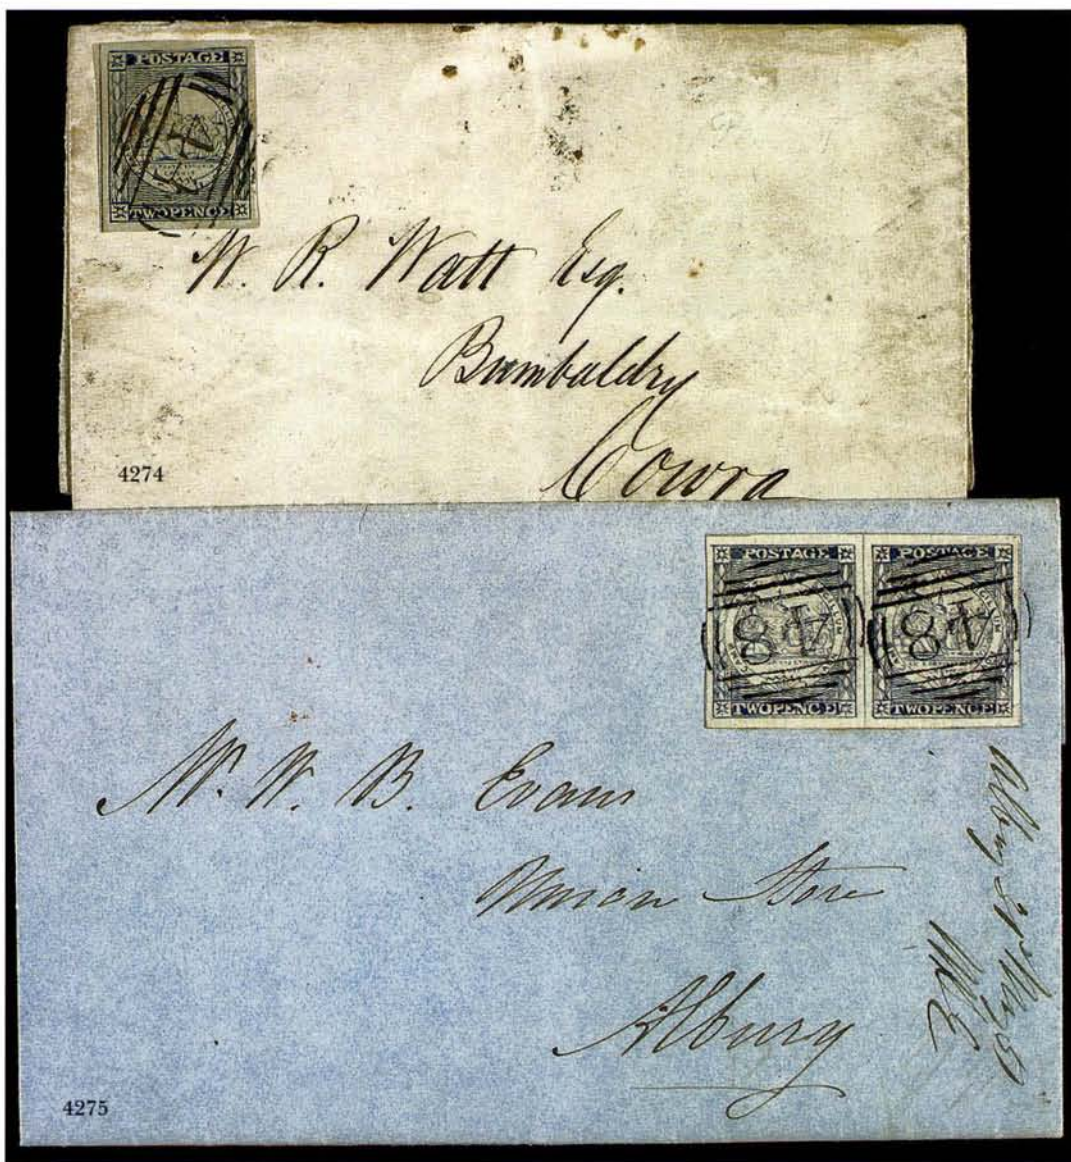 POSTAGE
TWO PENCE
W. R. Watt Esq.
Bumbaldry
Cowra
4274
POSTAGE POSTAGE
48 48
TWO PENCE TWO PENCE
Mr. W. B. Evans
Union Store
Albury
4275